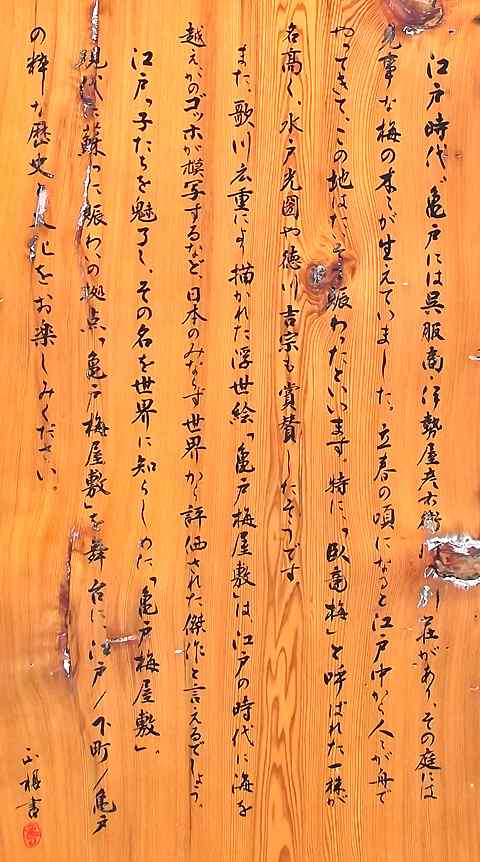 江戸時代、亀戸には呉服商・伊勢屋彦右衛門の別荘があり、その庭には
見事な梅の木々が生えていました。立春の頃になると江戸中から人々が舟で
やってきて、この地はたいそう賑わったといいます。特に、「臥竜梅」と呼ばれた一株が
名高く、水戸光圀や徳川吉宗も賞賛したそうです。
また、歌川広重により描かれた浮世絵「亀戸梅屋敷」は江戸の時代に海を
越え、かのゴッホが模写するなど、日本のみならず世界から評価された傑作と言えるでしょう。
江戸っ子たちを魅了し、その名を世界に知らしめた「亀戸梅屋敷」。
現代に蘇った賑わいの拠点「亀戸梅屋敷」を舞台に、江戸/下町/亀戸
の粋な歴史と文化をお楽しみください。
書